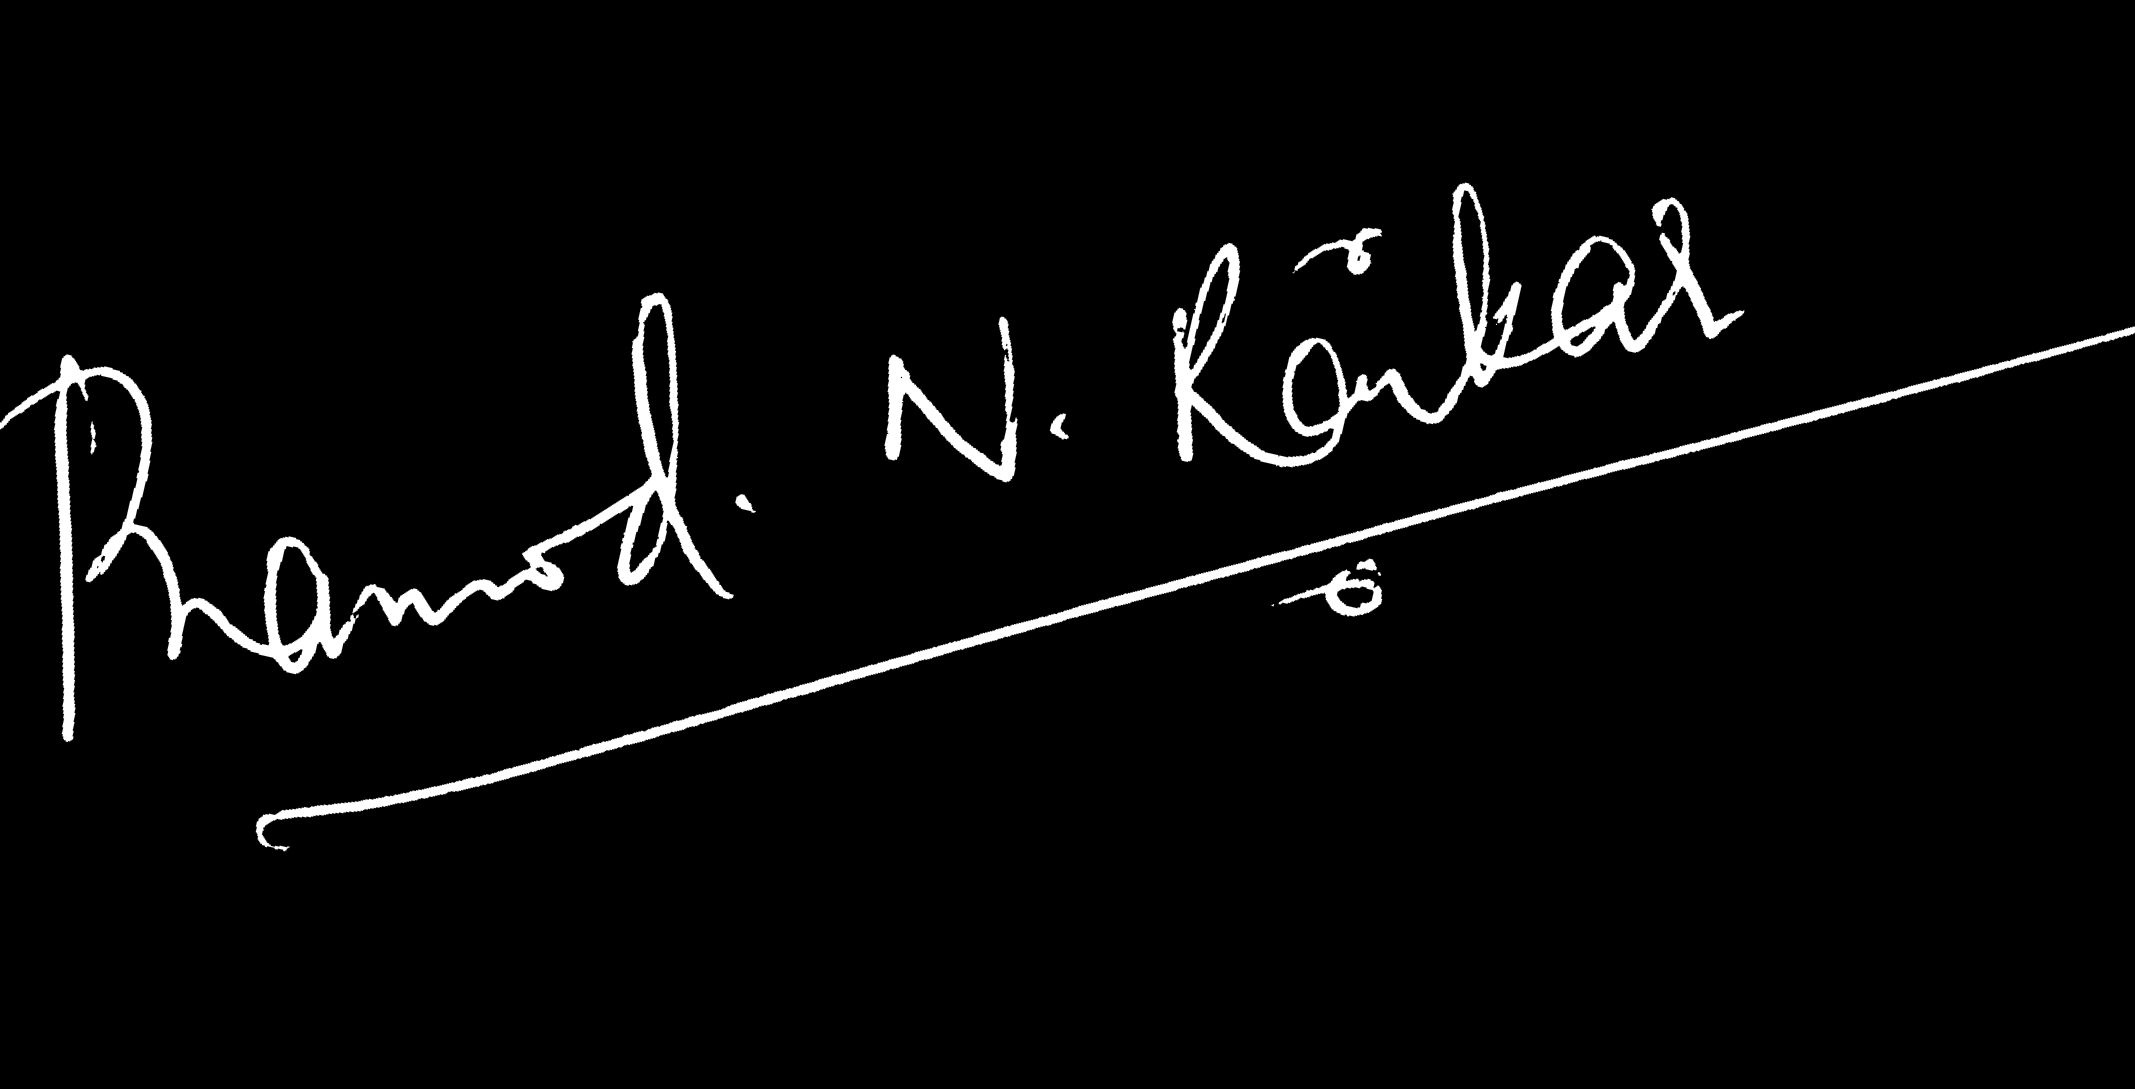 Pramod. N. Kankar